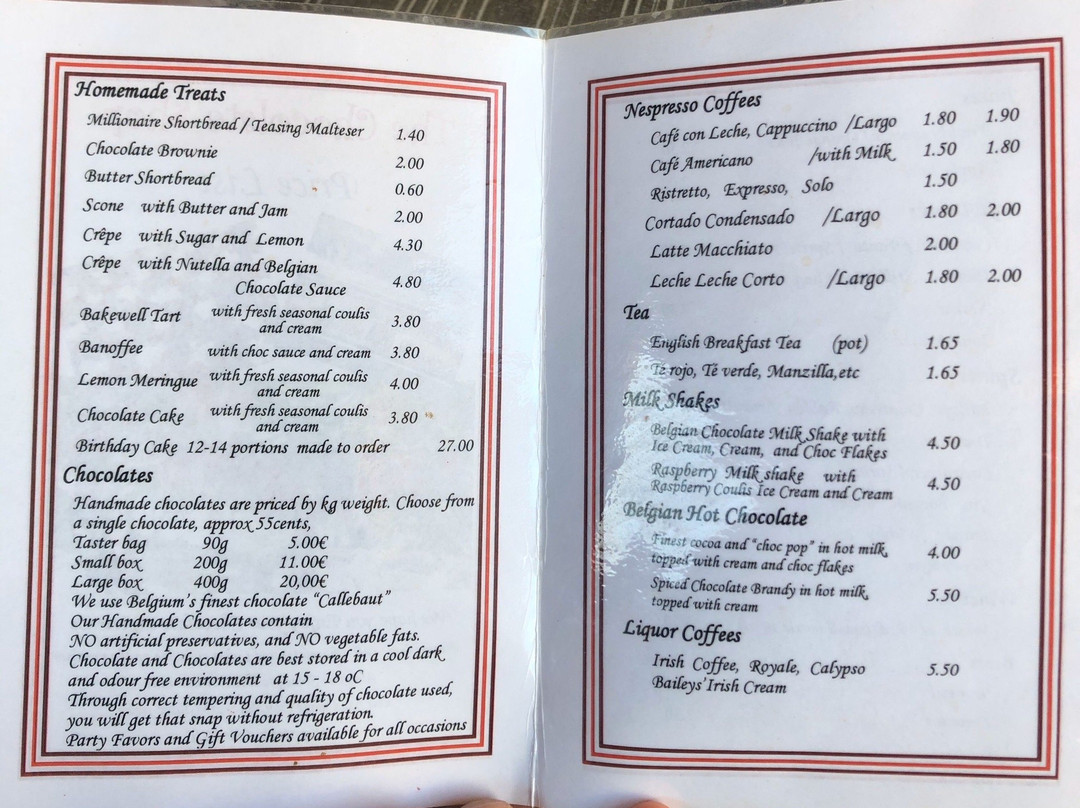 Homemade Treats
Millionaire Shortbread / Teasing Malteser 1.40
Chocolate Brownie 2.00
Butter Shortbread 0.60
Scone with Butter and Jam 2.00
Crêpe with Sugar and Lemon 4.30
Crêpe with Nutella and Belgian
Chocolate Sauce 4.80
Bakewell Tart with fresh seasonal coulis
and cream 3.80
Banoffee with choc sauce and cream 3.80
Lemon Meringue with fresh seasonal coulis
and cream 4.00
Chocolate Cake with fresh seasonal coulis
and cream 3.80
Birthday Cake 12-14 portions made to order 27.00
Chocolates
Handmade chocolates are priced by kg weight. Choose from
a single chocolate, approx 55cents,
Taster bag 90g 5.00€
Small box 200g 11.00€
Large box 400g 20,00€
We use Belgium's finest chocolate "Callebaut"
Our Handmade Chocolates contain
NO artificial preservatives, and NO vegetable fats.
Chocolate and Chocolates are best stored in a cool dark
and odour free environment at 15 - 18 oC
Through correct tempering and quality of chocolate used,
you will get that snap without refrigeration.
Party Favors and Gift Vouchers available for all occasions
Nespresso Coffees
Café con Leche, Cappuccino /Largo 1.80 1.90
Café Americano /with Milk 1.50 1.80
Ristretto, Expresso, Solo 1.50
Cortado Condensado /Largo 1.80 2.00
Latte Macchiato 2.00
Leche Leche Corto /Largo 1.80 2.00
Tea
English Breakfast Tea (pot) 1.65
Té rojo, Té verde, Manzilla,etc 1.65
Milk Shakes
Belgian Chocolate Milk Shake with
Ice Cream, Cream, and Choc Flakes 4.50
Raspberry Milk shake with
Raspberry Coulis Ice Cream and Cream 4.50
Belgian Hot Chocolate
Finest cocoa and "choc pop" in hot milk,
topped with cream and choc flakes 4.00
Spiced Chocolate Brandy in hot milk,
topped with cream 5.50
Liquor Coffees
Irish Coffee, Royale, Calypso 5.50
Baileys'Irish Cream